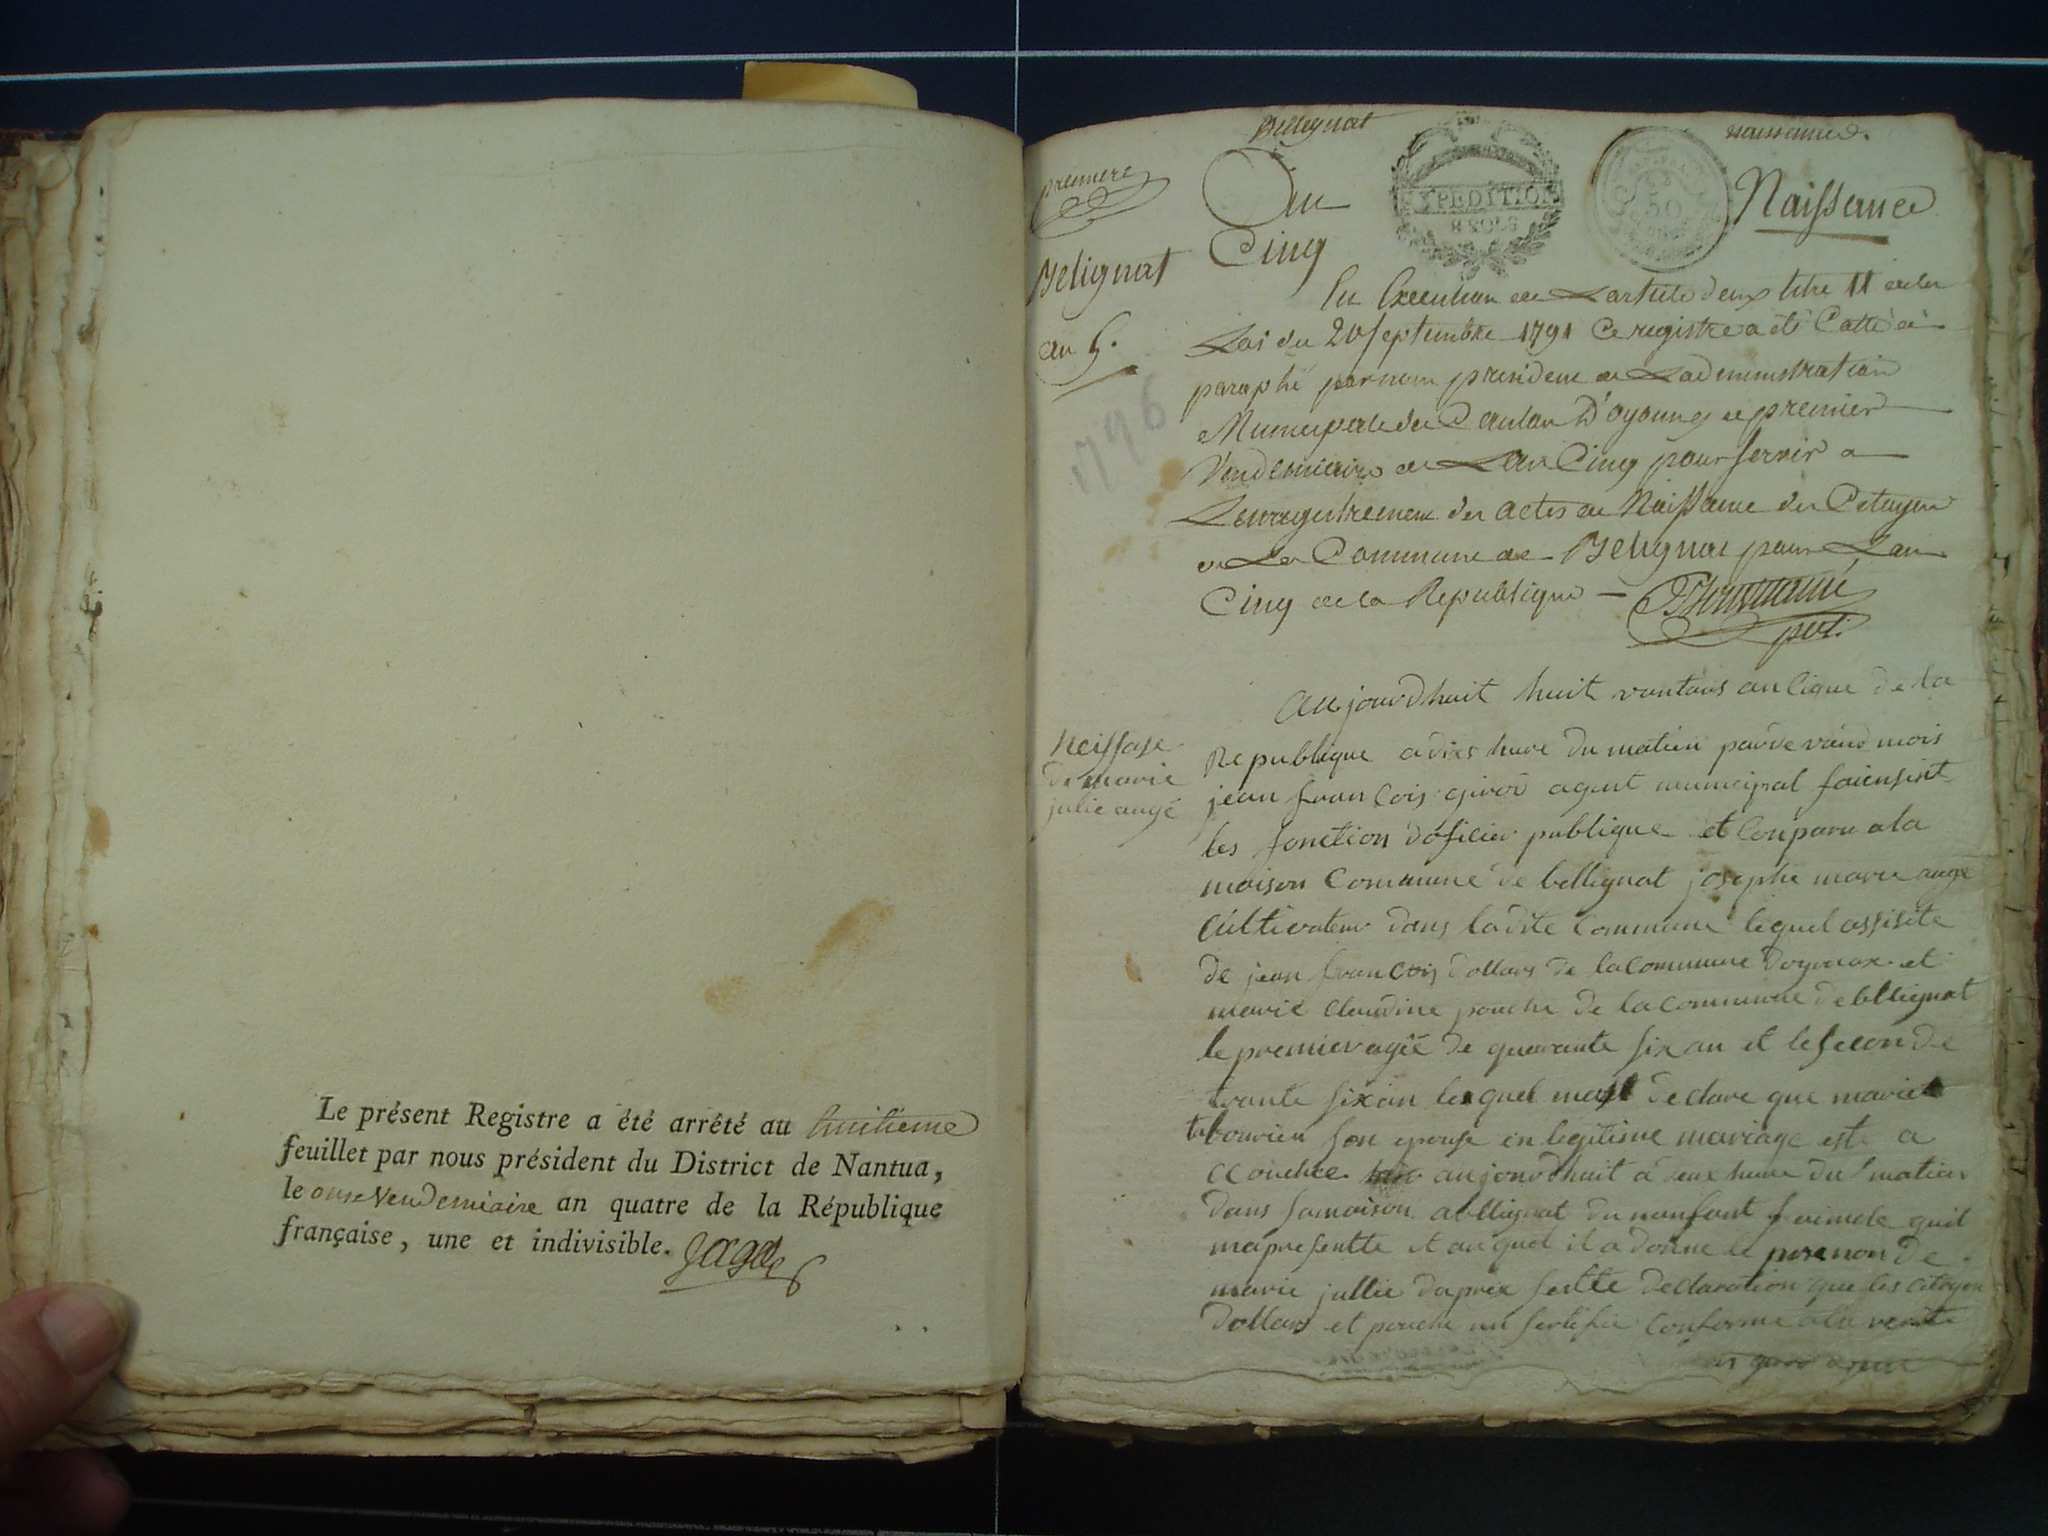 Le présent Registre a été arrêté au huitieme
feuillet par nous président du District de Nantua,
le onse vendemiaire an quatre de la République
française, une et indivisible.
Bellignat
naissance
premiere
An
Cinq
EXPEDITION
8 SOLS
50
Naissance
Belignat
an 5.
1796
En Execution de L'article deux titre II de la
Loi du 20 septembre 1791 Ce registre a été Cotté et
paraphé par nous president de L'administration
Municipale du Canton D'oyonnax le premier
Vendemiaire de L'an Cinq pour servir a
L'enregistrement des actes de Naissance des Citoyens
de La Commune de Belignat pour L'an
Cinq de la Republique
Aujourdhuit huit vantaus an cique de la
Neissase
de marie
julie augé
Republique a dies hure du matien par de vand mois
jean francois girod agent municipal faiensint
les fonction doficier publique et Conparu a la
maison Commune de bellignat josephe marie augé
Cultivateur dans ladite Commune lequel assisite
de jean francois dollars de la Commune doyonax et
marie claudine pouche de la commune de bllignat
le premier agée de quarante six an et le seconde
trante six an lequel mast declare que marie
tabourien son epouse en legitisme mariage est a
couchee aujourdhuit a deux hure du matien
dans sa maison a bllignat du nenfant feimele quil
ma presentte et auquel il a donne le prenon de
marie jullie daprix sestte declaration que les citoyen
dollars et pouche on sertifié Conforme a la verite